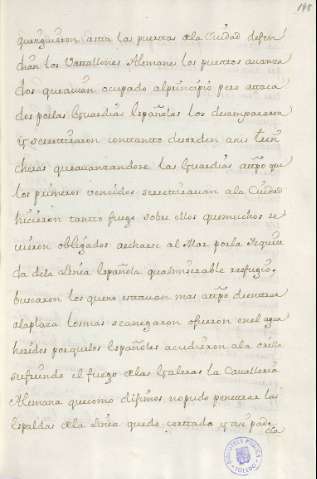 148
quinguieron asta las puertas de la Ciudad defen
dian los Vattallones Alemanes los puertos avanza
dos que avian ocupado al principio pero attaca
dos por las Guardias Españolas los desampararon
y se retiraron con tanto desorden a sus trin
cheras que avanzandose las Guardias attpo que
los primeros vencidos se retiravan a la Ciudad
hicieron tanto fuego sobre ellos que muchos se
vieron obligados a echarse al Mar por la Izquier
da de la Linea Española que miserable reffugio,
buscaron los que no estavan mas attpo de entrar
a la plaza los mas se anegaron o fueron en el agua
heridos por que los Españoles acudieron a la orilla
sufriendo el fuego de las Galeras la Cavalleria
Alemana que como digimos no pudo penetrar las
espaldas de la Linea quedo cortada y assi pade
cio
BIBLIOTECA PUBLICA